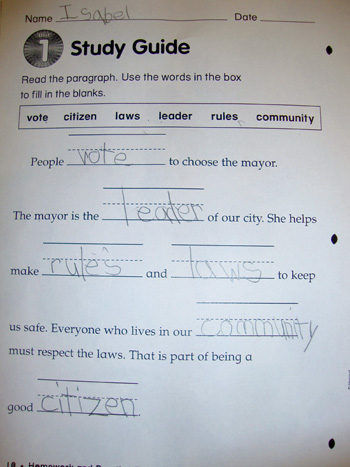 Name Isabel Date
UNIT 1 Study Guide
Read the paragraph. Use the words in the box
to fill in the blanks.
vote citizen laws leader rules community
People vote to choose the mayor.
The mayor is the leader of our city. She helps
make rules and laws to keep
us safe. Everyone who lives in our community
must respect the laws. That is part of being a
good citizen.
18 • Homework and